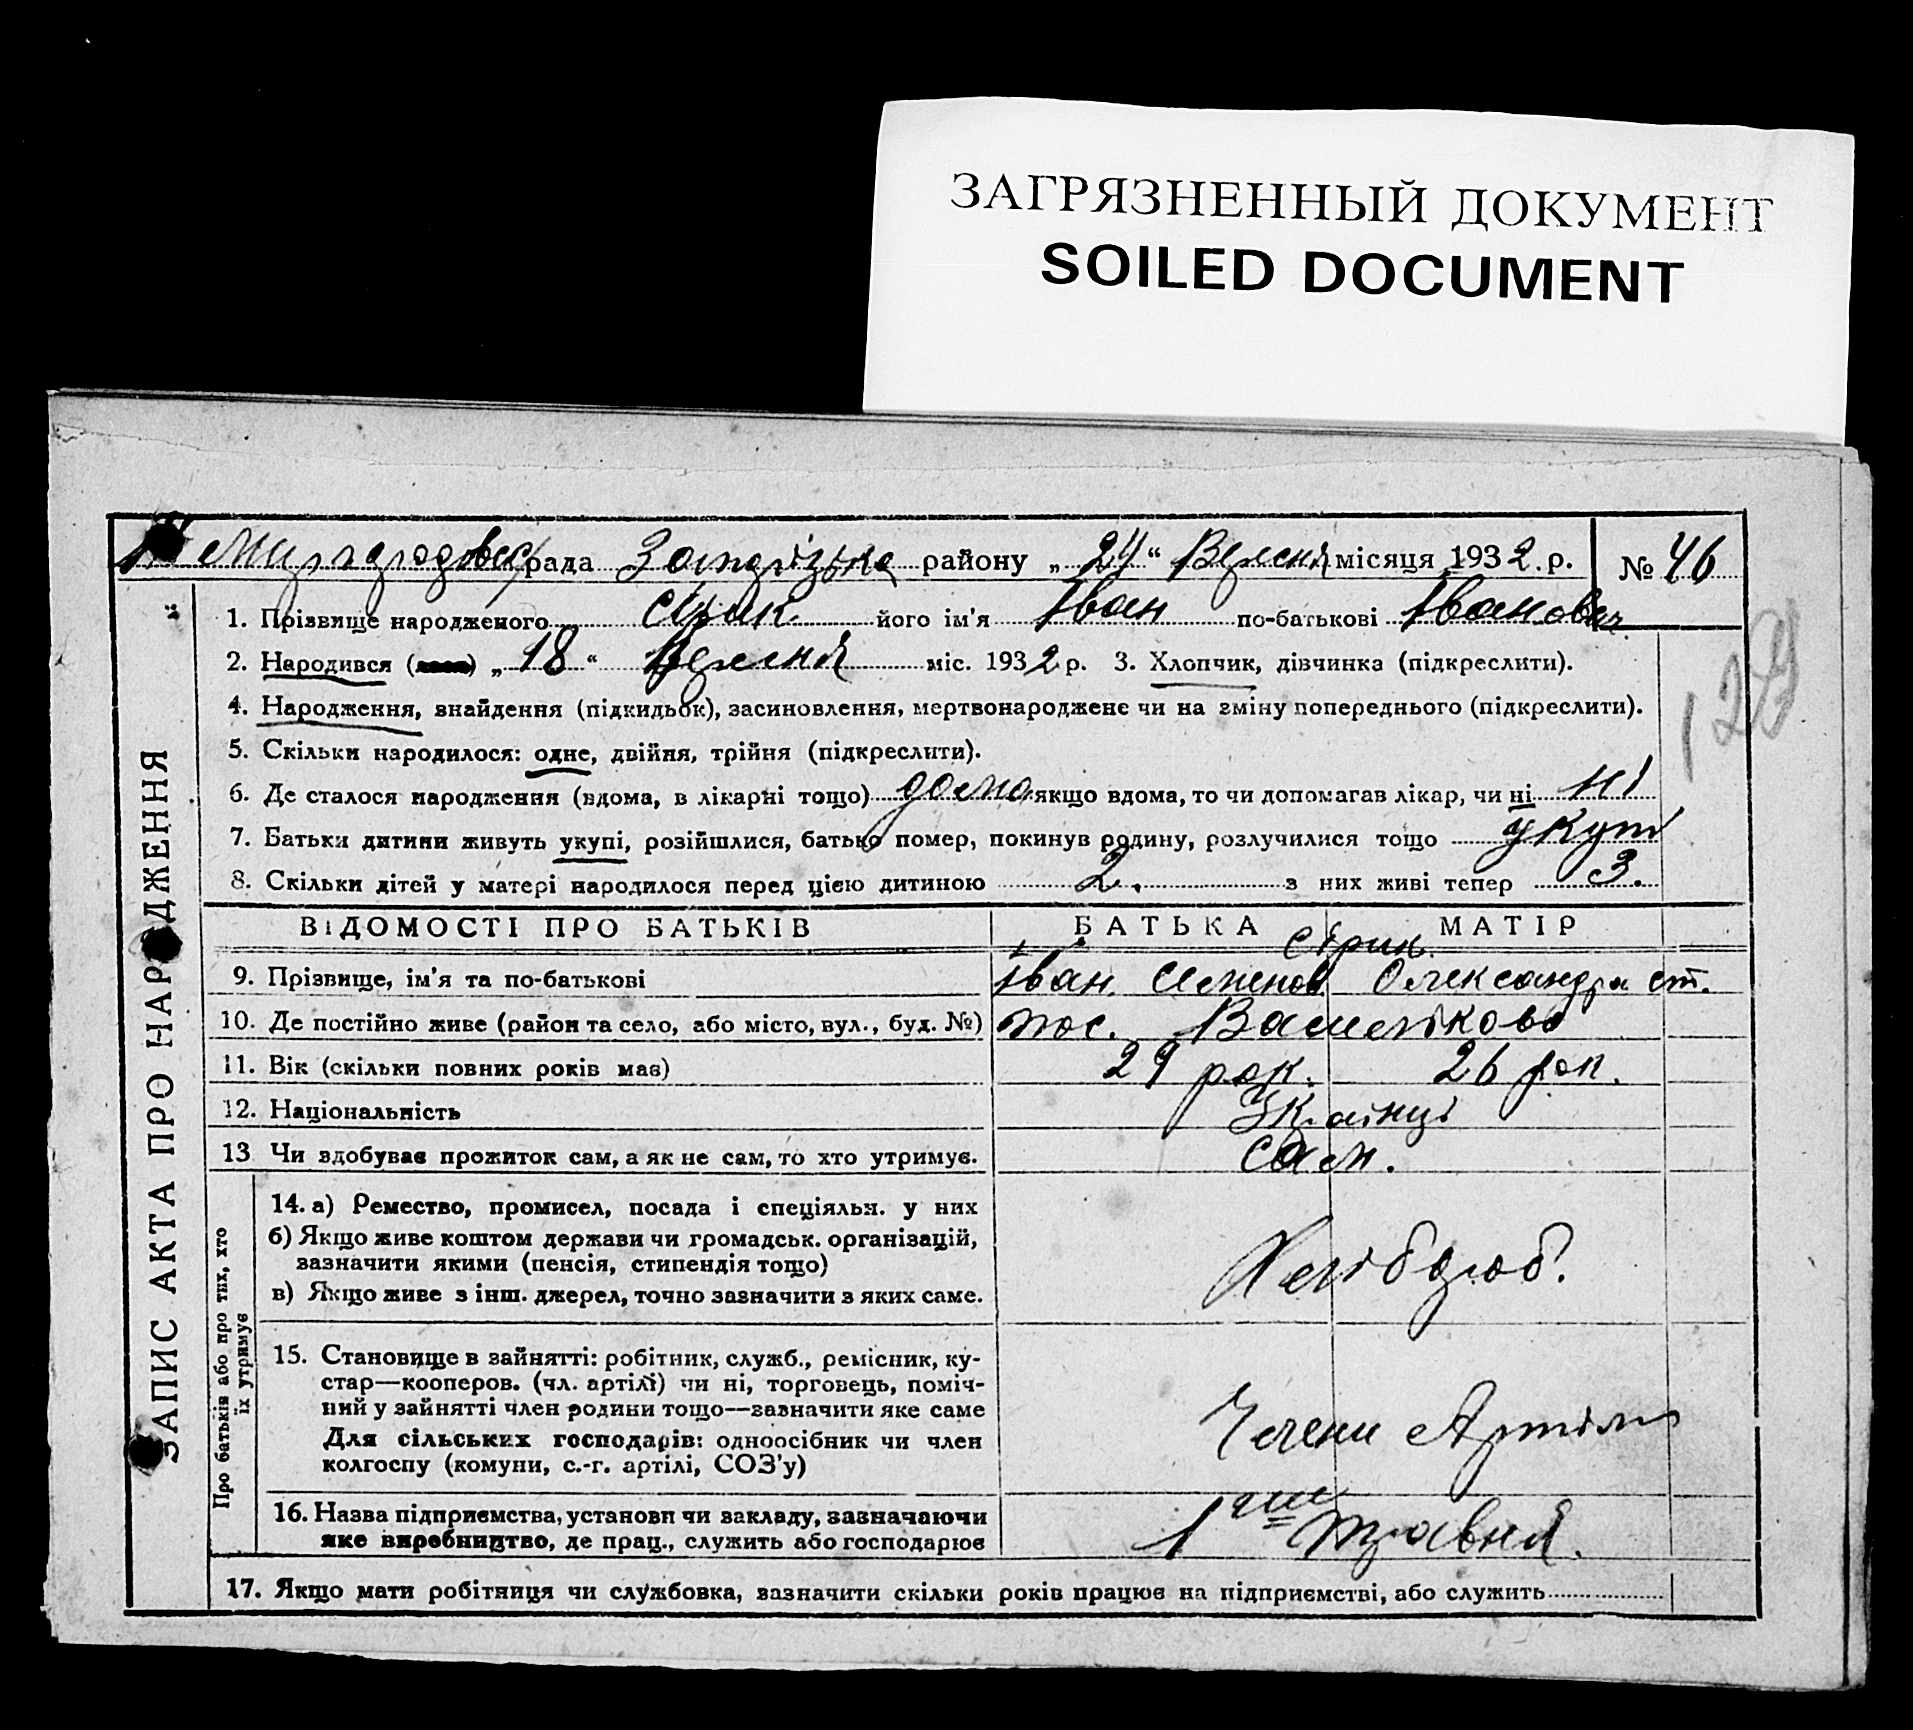 ЗАГРЯЗНЕННЫЙ ДОКУМЕНТ
SOILED DOCUMENT
рада району „ 24 “ Вересня місяця 1932. р. № 46
1. Прізвище народженого Сірик його ім'я Іван по-батькові Іванович
2. Народився „ 18 “ Вересня міс. 1932 р. 3. Хлопчик, дівчинка (підкреслити).
4. Народження, внайдення (підкидьок), засиновлення, мертвонароджене чи на зміну попереднього (підкреслити).
5. Скільки народилося: одне, двійня, трійня (підкреслити).
6. Де сталося народження (вдома, в лікарні тощо) дома якщо вдома, то чи допомагав лікар, чи ні ні
7. Батьки дитини живуть укупі, розійшлися, батько помер, покинув родину, розлучилися тощо укупі
8. Скільки дітей у матері народилося перед цією дитиною 2. з них живі тепер 3.
ВІДОМОСТІ ПРО БАТЬКІВ БАТЬКА МАТІР
Сірик
9. Прізвище, ім'я та по-батькові Іван Семенов Олександра Ст.
10. Де постійно живе (район та село, або місто, вул., буд. №) пос. Василькова
11. Вік (скільки повних років має) 29 рок. 26 рок.
12. Національність Українці
13 Чи здобуває прожиток сам, а як не сам, то хто утримує. сам.
14. а) Ремество, промисел, посада і спеціяльн. у них
б) Якщо живе коштом держави чи громадськ. організацій,
зазначити якими (пенсія, стипендія тощо)
в) Якщо живе з інш. джерел, точно зазначити з яких саме.
Хлібороб.
15. Становище в зайнятті: робітник, служб., ремісник, ку-
стар—кооперов. (чл. артілі) чи ні, торговець, поміч-
ний у зайнятті член родини тощо—зазначити яке саме
Для сільських господарів: одноосібник чи член
колгоспу (комуни, с.-г. артілі, СОЗ'у)
Члени Артілі
16. Назва підприємства, установи чи закладу, зазначаючи
яке виробництво, де прац., служить або господарює
1 Травня.
17. Якщо мати робітниця чи службовка, зазначити скільки років працює на підприємстві, або служить
ЗАПИС АКТА ПРО НАРОДЖЕННЯ „
Про батьків або про тих, хто
їх утримує